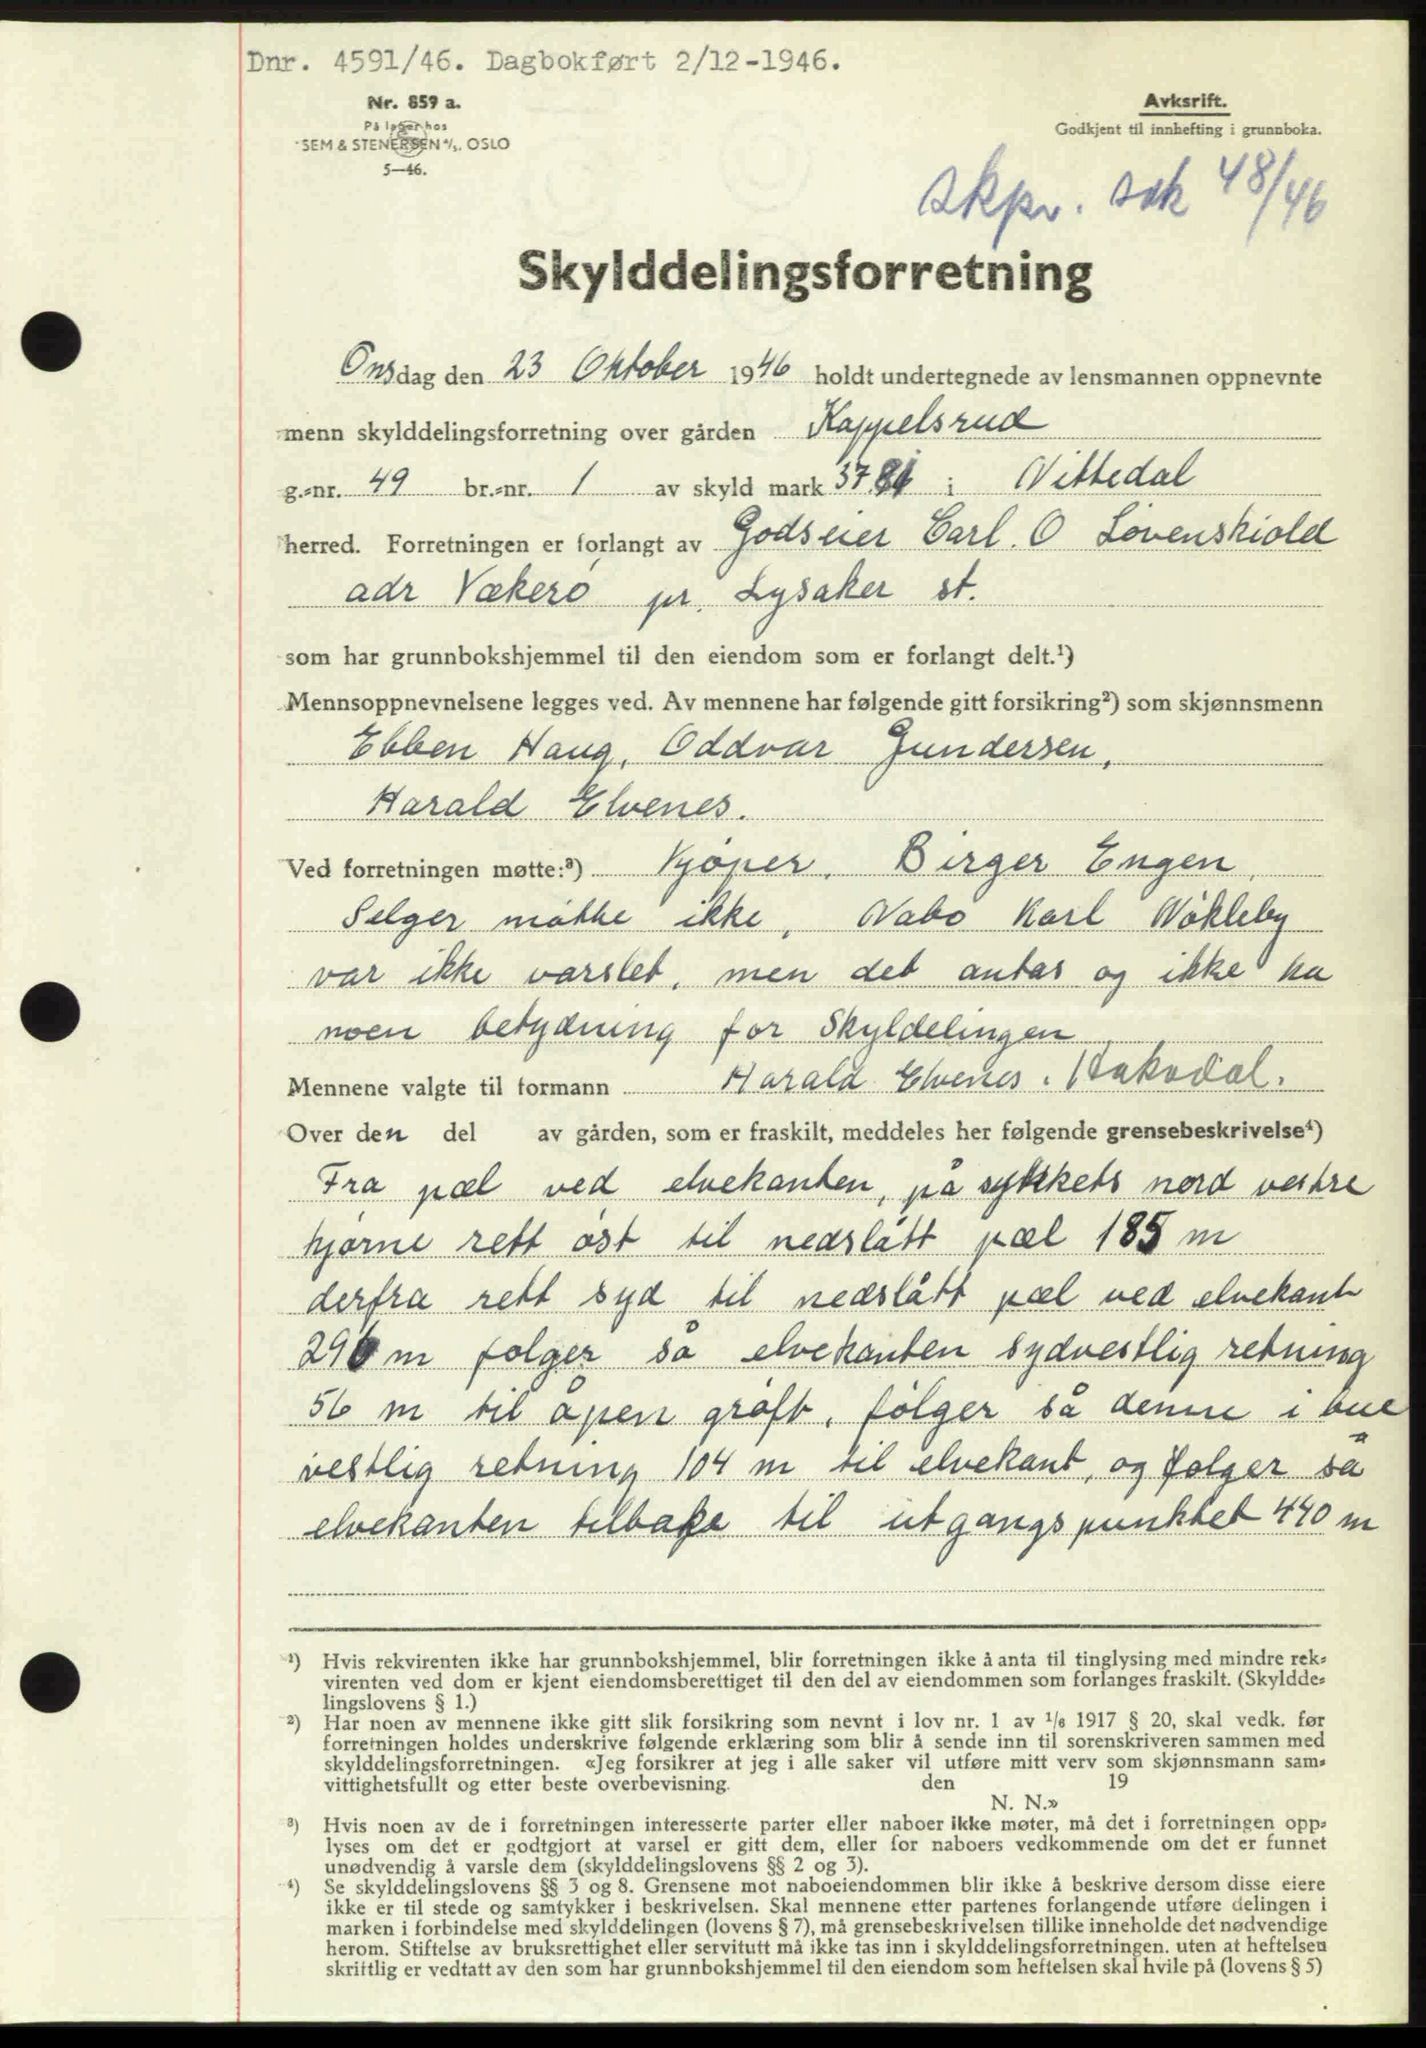 Dnr. 4591/46. Dagbokført 2/12-1946.
Nr. 859 a.
På lager hos
SEM & STENERSEN A/S, OSLO
5—46.
Avksrift.
Godkjent til innhefting i grunnboka.
skpv. sak 48/46
Skylddelingsforretning
Onsdag den 23 Oktober 1946 holdt undertegnede av lensmannen oppnevnte
menn skylddelingsforretning over gården Kappelsrud
g.-nr. 49 br.-nr. 1 av skyld mark 37.81 i Nittedal
herred. Forretningen er forlangt av Godseier Carl. O Løvenskiold
adr Vækerö pr. Lysaker st.
som har grunnbokshjemmel til den eiendom som er forlangt delt.¹)
Mennsoppnevnelsene legges ved. Av mennene har følgende gitt forsikring²) som skjønnsmenn
Ebben Haug, Oddvar Gundersen,
Harald Elvenes.
Ved forretningen møtte:³) Kjöper, Birger Engen,
Selger møtte ikke, Nabo Karl Nökleby
var ikke varslet, men det antas og ikke ha
noen betydning for Skyldelingen
Mennene valgte til formann Harald Elvenes. Hakadal.
Over den del av gården, som er fraskilt, meddeles her følgende grensebeskrivelse⁴)
Fra pæl ved elvekanten, på sykkets nord vestre
hjørne rett öst til nedslått pæl 185 m
derfra rett syd til nedslått pæl ved elvekant
296 m følger så elvekanten sydvestlig retning
56 m til åpen gröft, fölger så denne i bue
vestlig retning 104 m til elvekant, og følger så
elvekanten tilbake til utgangspunktet 440 m
¹) Hvis rekvirenten ikke har grunnbokshjemmel, blir forretningen ikke å anta til tinglysing med mindre rek-
virenten ved dom er kjent eiendomsberettiget til den del av eiendommen som forlanges fraskilt. (Skyldde-
lingslovens § 1.)
²) Har noen av mennene ikke gitt slik forsikring som nevnt i lov nr. 1 av 1/6 1917 § 20, skal vedk. før
forretningen holdes underskrive følgende erklæring som blir å sende inn til sorenskriveren sammen med
skylddelingsforretningen. «Jeg forsikrer at jeg i alle saker vil utføre mitt verv som skjønnsmann sam-
vittighetsfullt og etter beste overbevisning. den 19
N. N.»
³) Hvis noen av de i forretningen interesserte parter eller naboer ikke møter, må det i forretningen opp-
lyses om det er godtgjort at varsel er gitt dem, eller for naboers vedkommende om det er funnet
unødvendig å varsle dem (skylddelingslovens §§ 2 og 3).
⁴) Se skylddelingslovens §§ 3 og 8. Grensene mot naboeiendommen blir ikke å beskrive dersom disse eiere
ikke er til stede og samtykker i beskrivelsen. Skal mennene etter partenes forlangende utføre delingen i
marken i forbindelse med skylddelingen (lovens § 7), må grensebeskrivelsen tillike inneholde det nødvendige
herom. Stiftelse av bruksrettighet eller servitutt må ikke tas inn i skylddelingsforretningen. uten at heftelsen
skriftlig er vedtatt av den som har grunnbokshjemmel til den eiendom som heftelsen skal hvile på (lovens § 5)